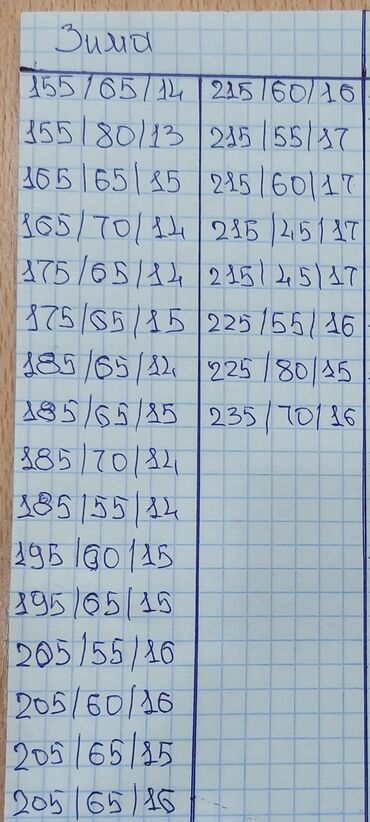 Зима
155/65/14
155/80/13
165/65/15
165/70/14
175/65/14
175/65/15
185/65/14
185/65/15
185/70/14
185/55/14
195/60/15
195/65/15
205/55/16
205/60/16
205/65/15
205/65/16
215/60/16
215/55/17
215/60/17
215/45/17
215/45/17
225/55/16
225/80/15
235/70/16